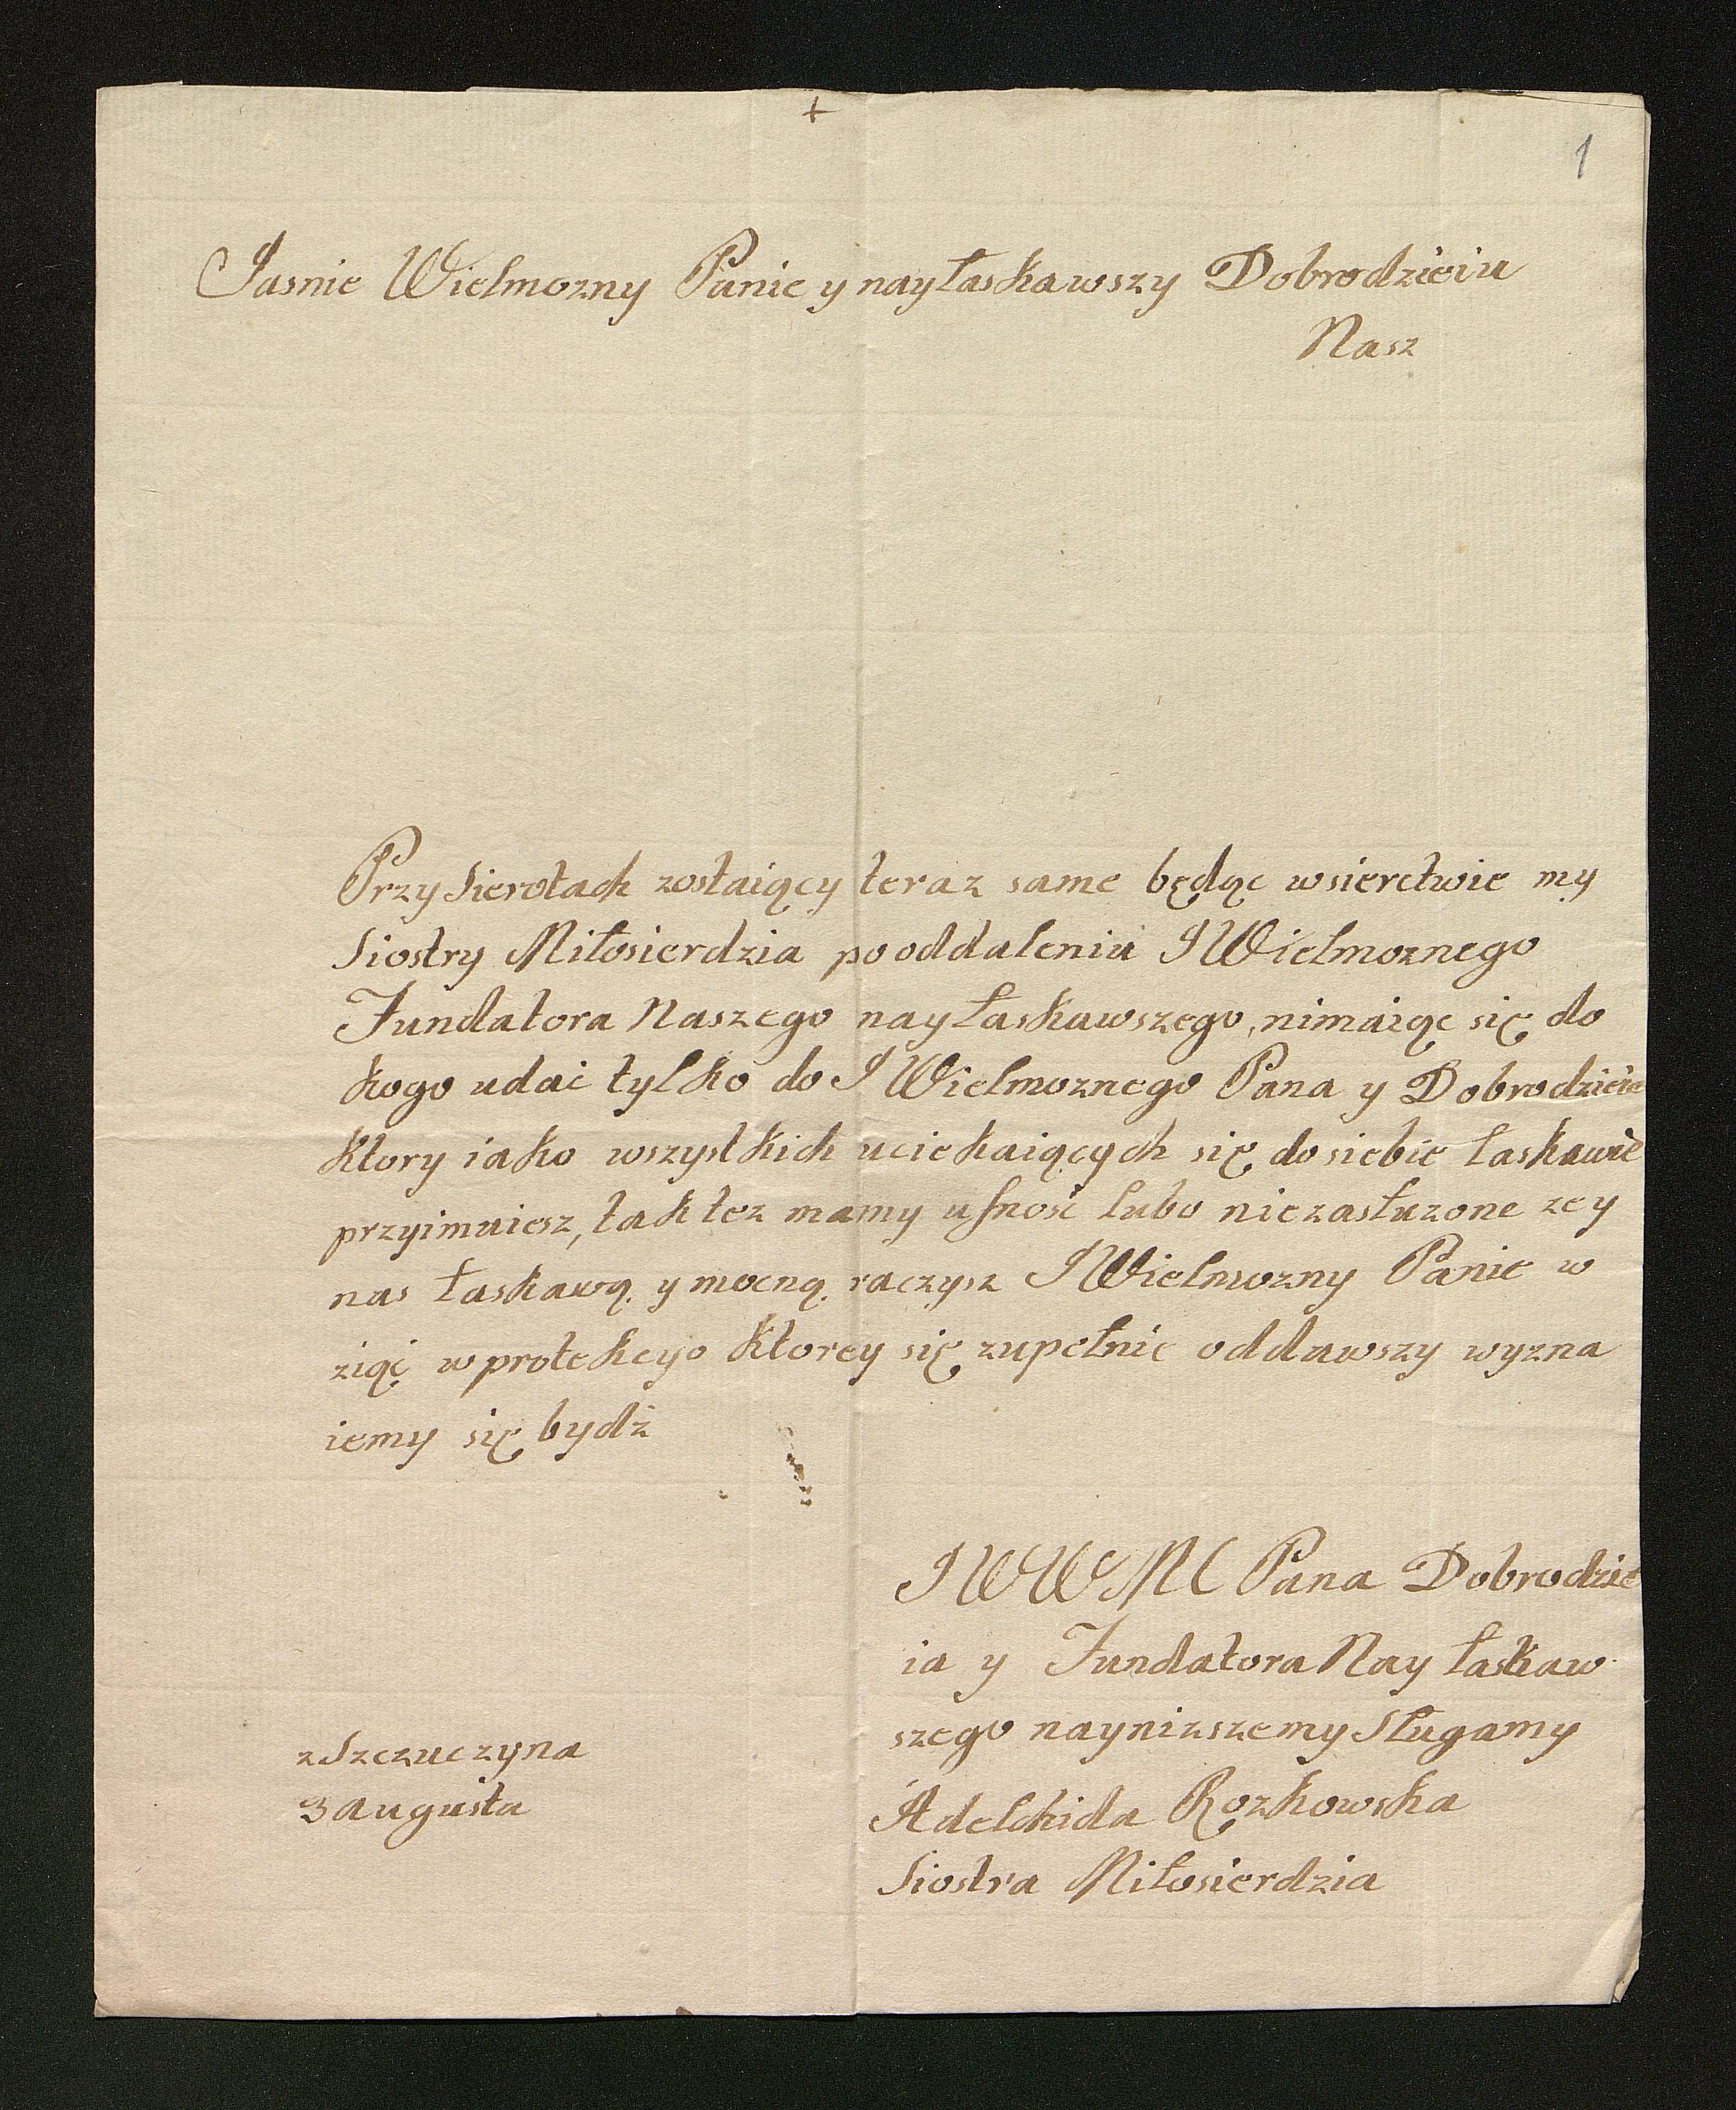 +
1
Jasnie Wielmozny Panie y nayłaskawszy Dobrodzieiu
Nasz
Przy Sierotach zostaiący teraz same będąc wsierctwie my
Siostry Miłosierdzia po oddaleniu J Wielmoznego
Fundatora Naszego nayłaskawszego, nimaiąc się do
kogo udać tylko do J Wielmoznego Pana y Dobrodzieia
ktory iako wszystkich uciekaiących się do siebie łaskawie
przyimuiesz, tak tez mamy ufność lubo niezasłuzone ze y
nas łaskawą y mocną raczysz J Wielmozny Panie w
ziąć w protekcyo ktorey się zupełnie oddawszy wyzna
iemy się bydź
J W W M C Pana Dobrodzie
ia y Fundatora Nay łaskaw
szego naynizszemy Sługamy
Adelchida Rozkowska
Siostra Miłosierdzia
z Szczuczyna
3 augusta